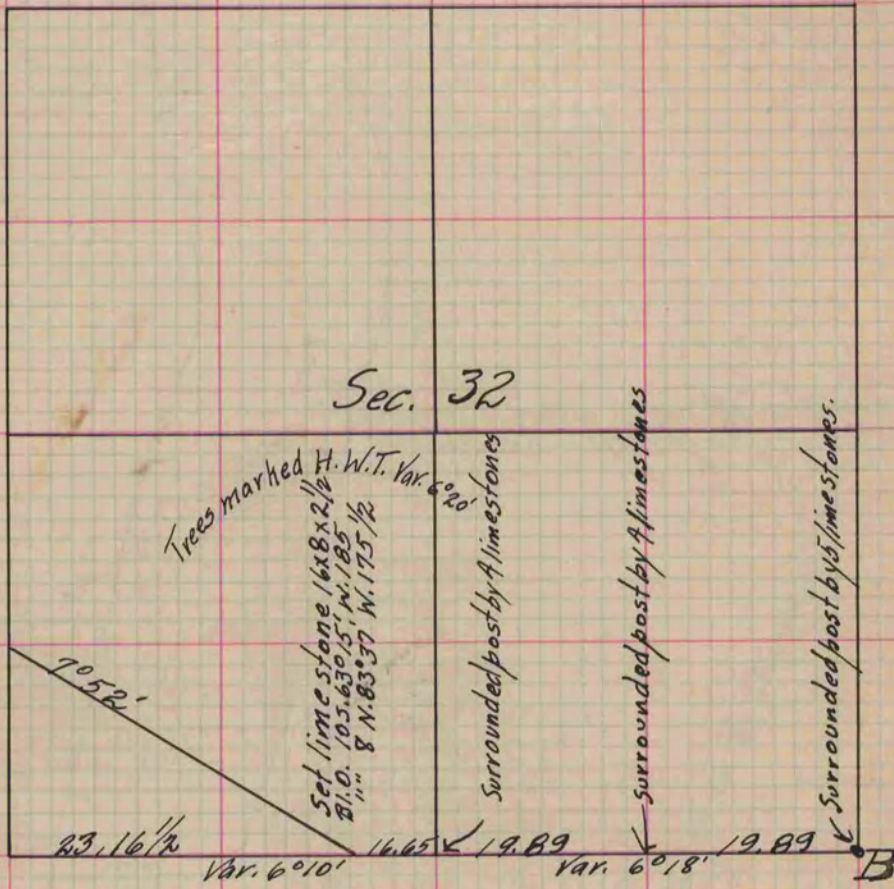 Sec. 32
Trees marked H.W.T. Var. 6°20'
Set lime stone 16x8x2½"
Bl.O. 10 S.63°15' W.185
"" 8 N.83°37 W.175½
Surrounded post by 4 limestones
Surrounded post by 4 limestones
Surrounded post by 5 limestones.
7°52'
23.16½
16.65
19.89
19.89
Var. 6°10'
Var. 6°18'
B